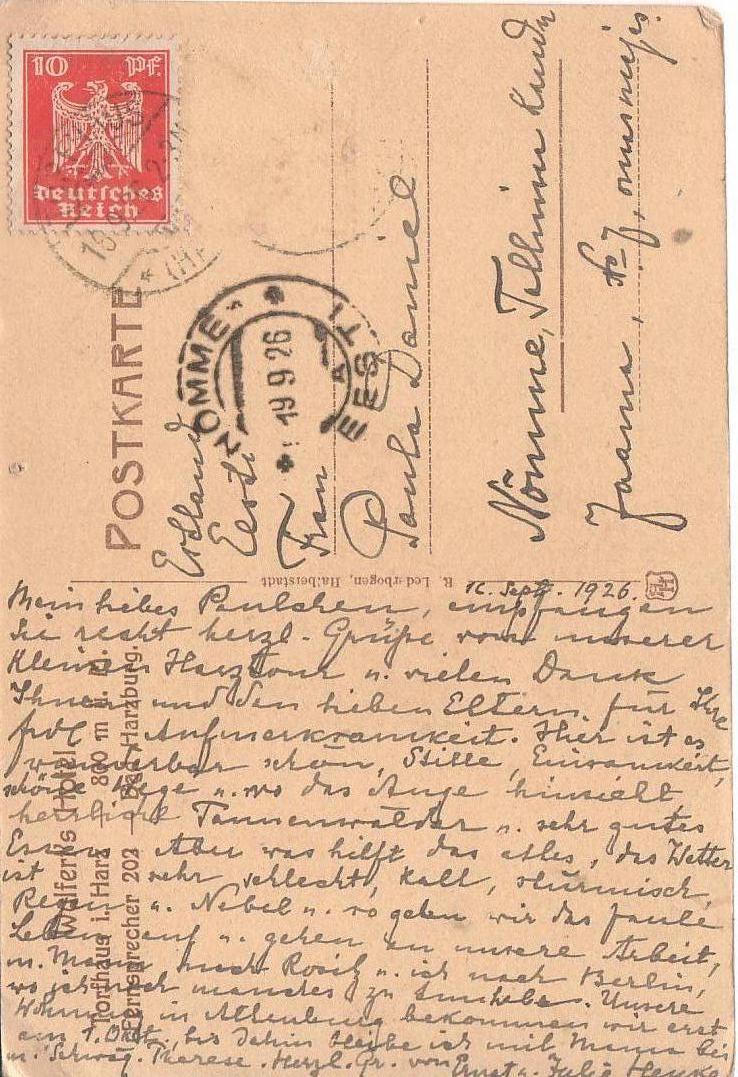 10 Pf.
Deutsches
Reich
POSTKARTE
NÕMME
19 9 26
EESTI
Estland
Eesti
Frau
Paula Daniel
Nõmme, Tallinna
Jaama, No 7, omas majas.
R. Lederbogen, Halberstadt
Wolferts Hotel
Torfhaus i. Harz 800 m ü. M.
Fernsprecher 202 Bad Harzburg.
16. Sept. 1926.
Mein liebes Paulchen, empfangen
Sie recht herzl. Grüße von unserer
kleinen Harztour u. vielen Dank
Ihnen und den lieben Eltern für Ihre
frdl. Aufmerksamkeit. Hier ist es
wunderbar schön, Stille, Einsamkeit,
schöne Wege u. wo das Auge hinsieht
herrliche Tannenwälder u. sehr gutes
Essen. Aber was hilft das alles, das Wetter
ist sehr schlecht, kalt, stürmisch,
Regen u. Nebel u. so geben wir das faule
Leben auf u. gehen an unsere Arbeit,
m. Mann nach u. ich nach Berlin,
wo ich noch manches zu tun habe. Unsere
Wohnung in Altenburg bekommen wir erst
am 1. Okt., bis dahin bleibe ich mit Mama bei
m. Schwäg. Therese. Herzl. Gr. von Ernst u. Julie